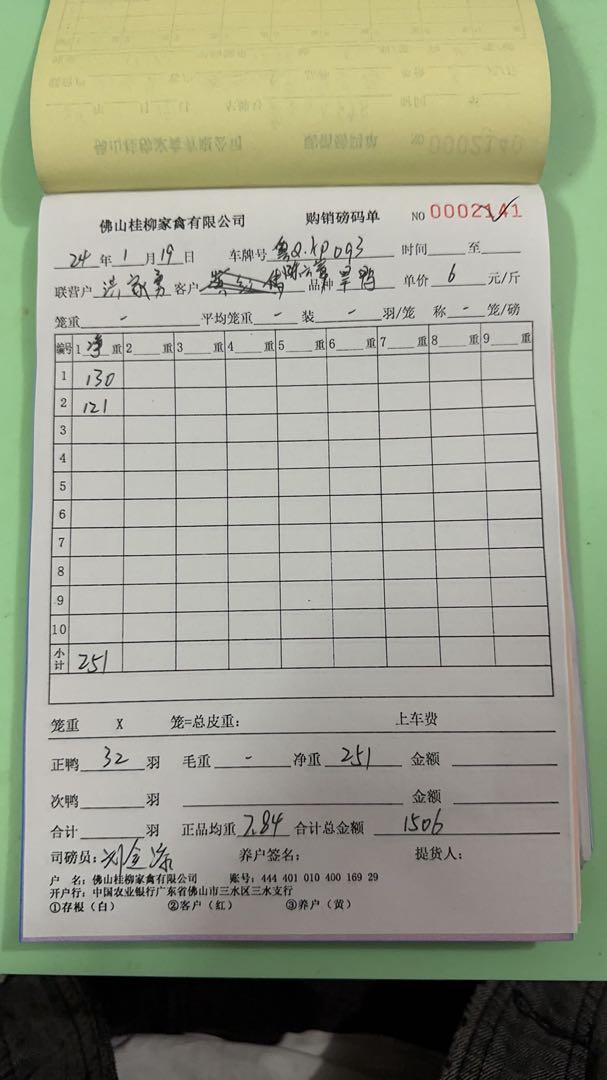 佛山桂柳家禽有限公司 购销磅码单 NO 0002141
24 年 1 月 19 日 车牌号 粤Q·XP093 时间 至
联营户 洪家勇 客户 品种 旱鸭 单价 6 元/斤
笼重 - 平均笼重 - 装 - 羽/笼 称 - 笼/磅
编号 1 净 重 2 重 3 重 4 重 5 重 6 重 7 重 8 重 9 重
1 130
2 121
3
4
5
6
7
8
9
10
小计 251
笼重 X 笼=总皮重: 上车费
正鸭 32 羽 毛重 - 净重 251 金额
次鸭 羽 金额
合计 羽 正品均重 7.84 合计总金额 1506
司磅员: 养户签名: 提货人:
户 名: 佛山桂柳家禽有限公司 账号: 444 401 010 400 169 29
开户行: 中国农业银行广东省佛山市三水区三水支行
①存根（白） ②客户（红） ③养户（黄）